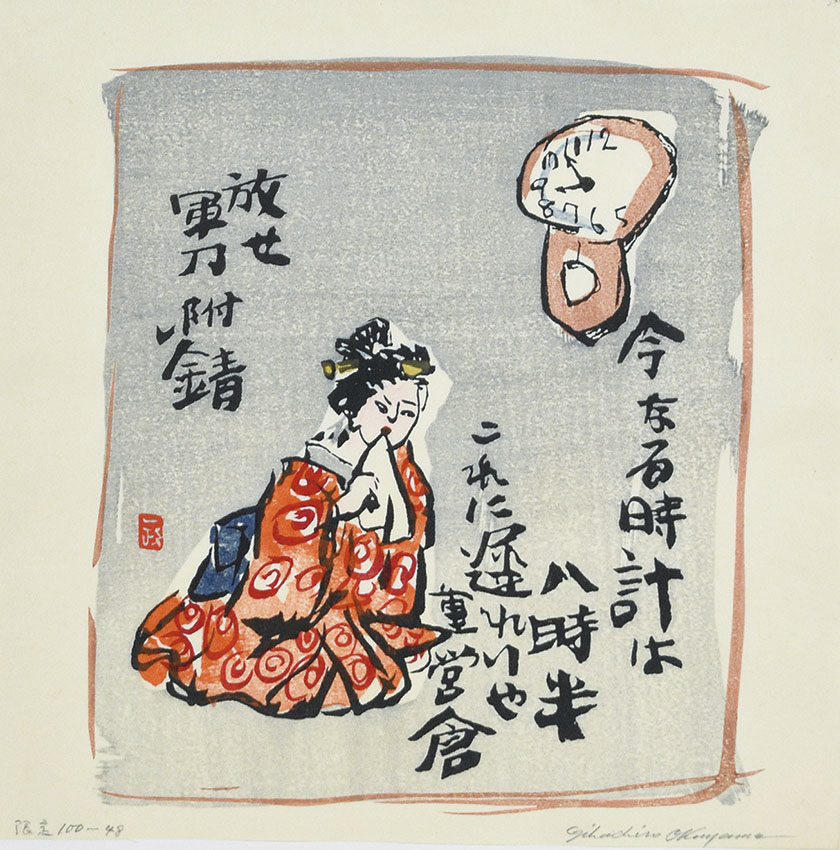 今なる時計は
八時半
これに遅れりや
重営倉
放せ
軍刀
附錆
一政
10 11 12
9
8 7 6 5
限定100-48
Gihachiro Okuyama